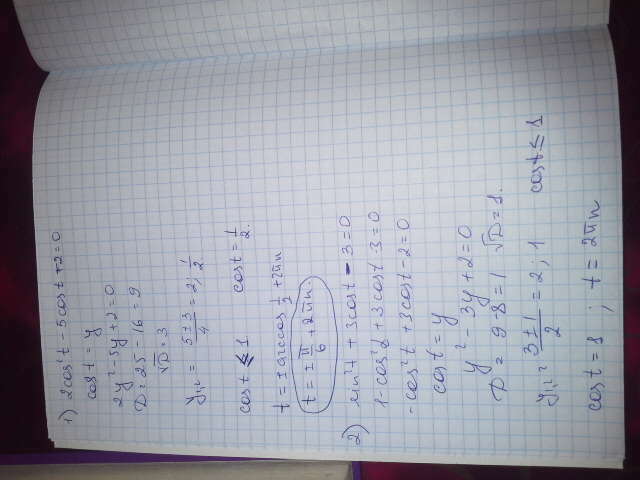 1) 2cos²t - 5cost + 2 = 0
cost = y
2y² - 5y + 2 = 0
D = 25 - 16 = 9
√D = 3
y₁,₂ = (5 ± 3)/4 = 2; 1/2
cost ≤ 1 cost = 1/2.
t = ± arccos 1/2 + 2πn
t = ± π/6 + 2πn.
2) sin²t + 3cost - 3 = 0
1 - cos²t + 3cost - 3 = 0
- cos²t + 3cost - 2 = 0
cost = y
y² - 3y + 2 = 0
D = 9 - 8 = 1 √D = 1.
y₁,₂ = (3 ± 1)/2 = 2; 1 cost ≤ 1
cost = 1; t = 2πn